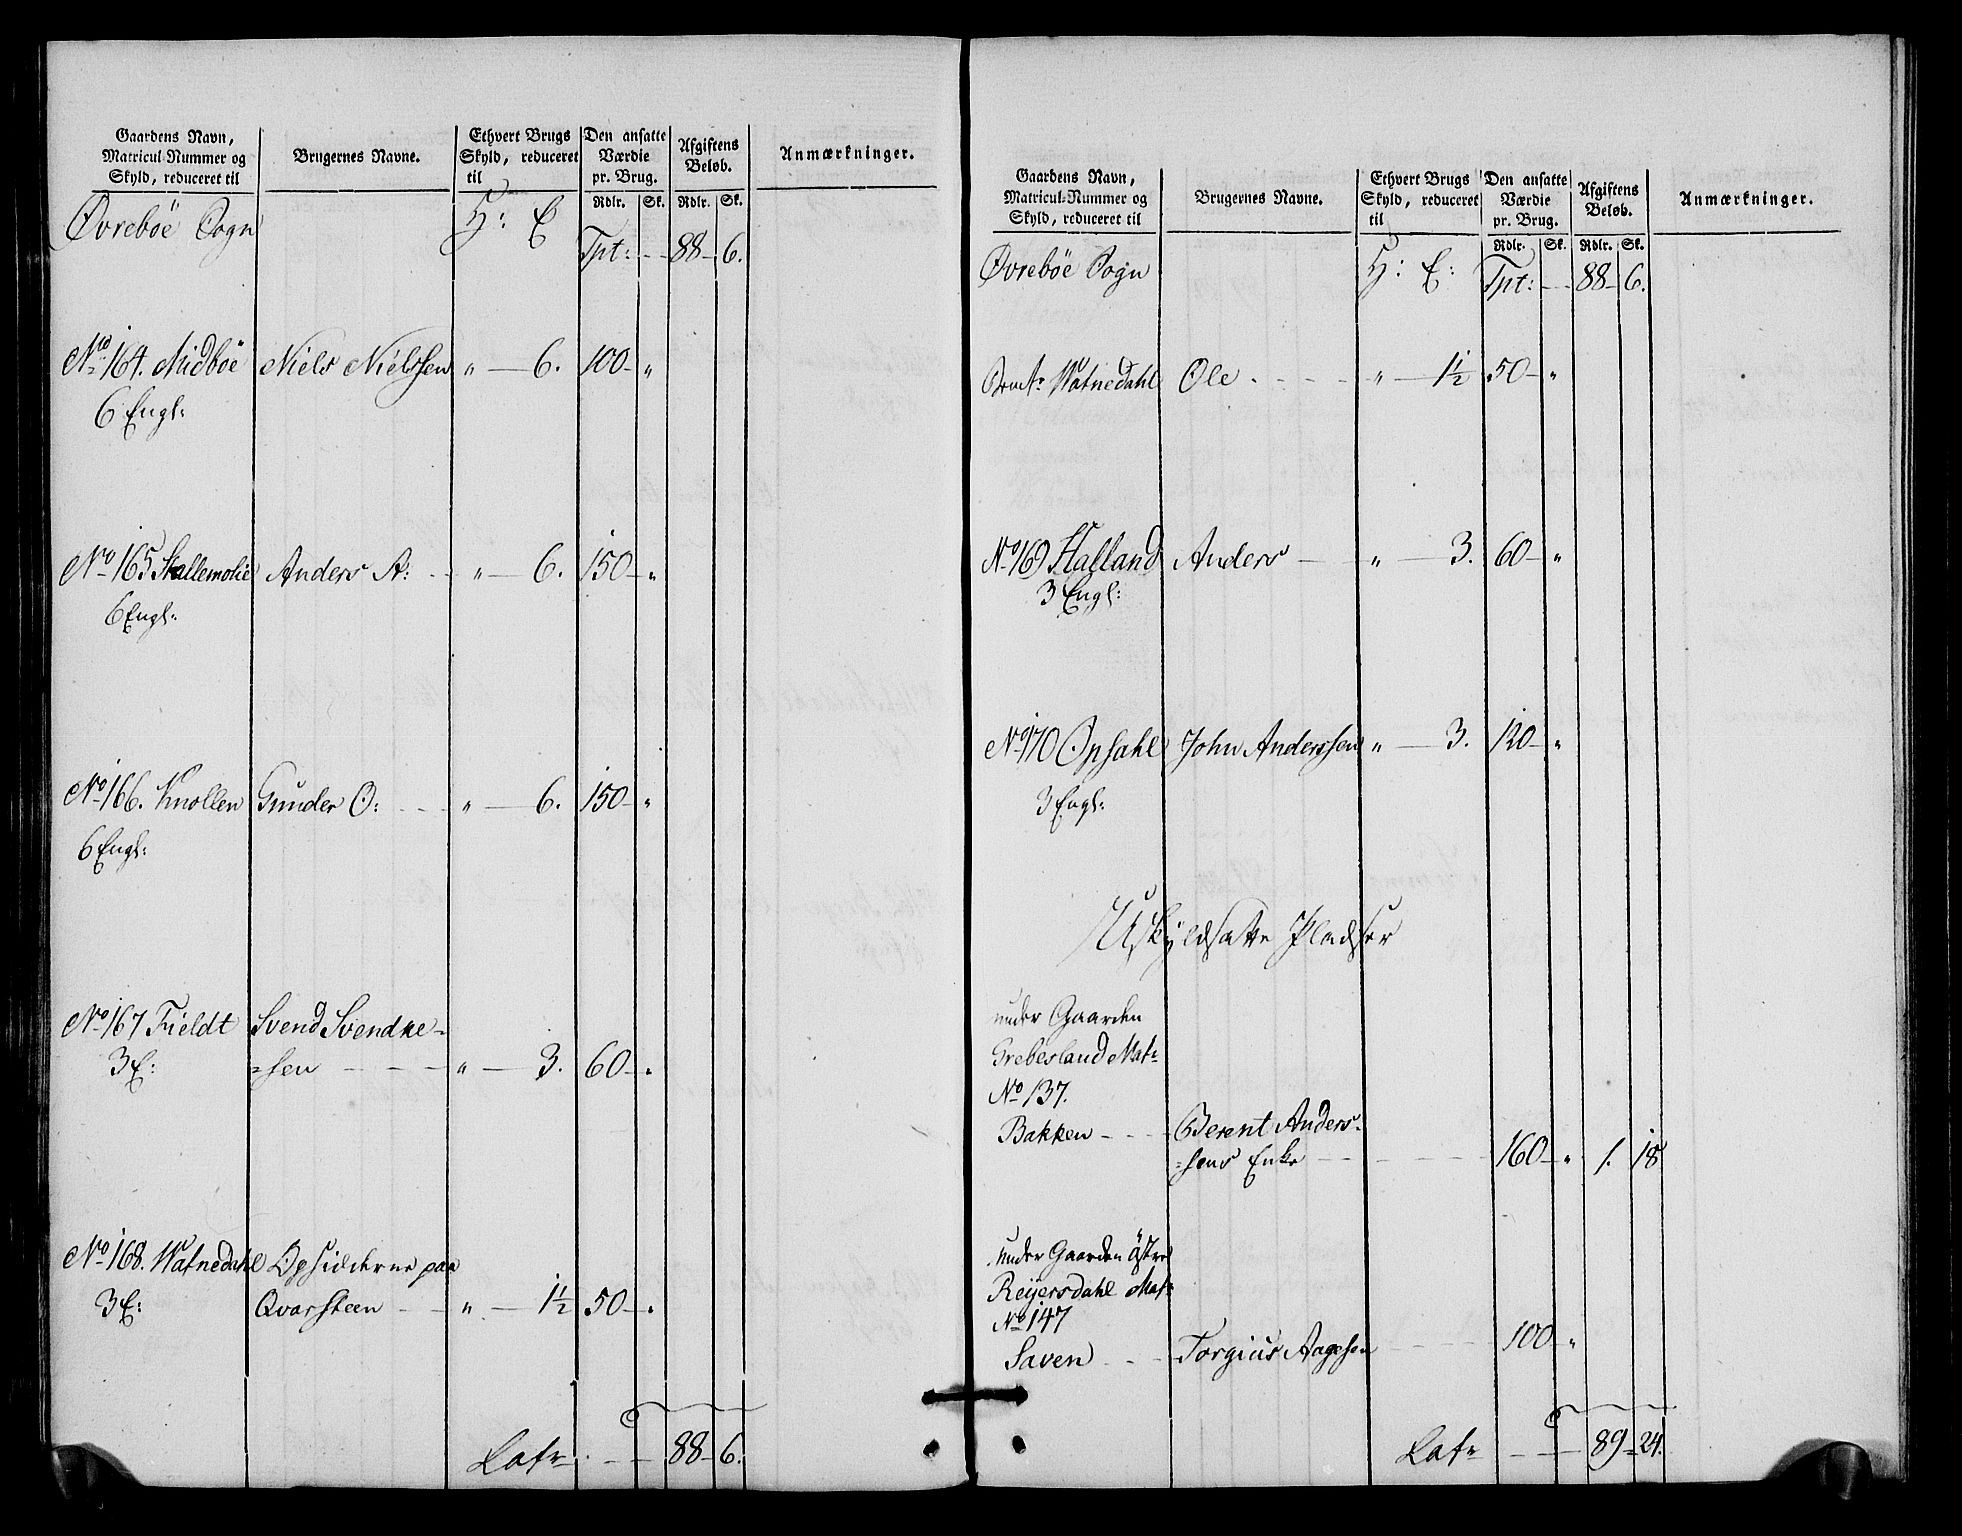 Gaardens Navn, Matricul-Nummer og Skyld, reduceret til | Brugernes Navne. | Ethvert Brugs Skyld, reduceret til | Den ansatte Værdie pr. Brug. | Afgiftens Beløb. | Anmærkninger.
Rdlr. Sk. Rdlr. Sk.
Øvreböe Sogn H: E
Tpt: — 88 — 6.
No 164. Midböe Niels Nielssen " — 6. 100 — "
6 Engl:
No 165 Anders A: — " — 6. 150 — "
6 Engl:
No 166. Knollen Gunder O: — " — 6. 150 — "
6 Engl:
No 167 Fieldt Svend Svendke-
3 E: =sen — " — 3. 60 — "
No 168. Watnedahl Opsidderne paa
3 E: Qvarsteen — " — 1½ 50 — "
Latr — 88 — 6.
Gaardens Navn, Matricul-Nummer og Skyld, reduceret til | Brugernes Navne. | Ethvert Brugs Skyld, reduceret til | Den ansatte Værdie pr. Brug. | Afgiftens Beløb. | Anmærkninger.
Rdlr. Sk. Rdlr. Sk.
Øvreböe Sogn H: E: Tpt: — 88 — 6.
Watnedahl Ole — " — 1½ 50 — "
No 169 Halland Anders — " — 3. 60 — "
3 Engl:
No 170 Opsahl John Anderssen " — 3. 120 — "
3 Engl:
Uskyldsatte Pladser
under Gaarden
Grebesland Matr
No 137.
Bakken — Berent Anders-
=sens Enke — 160 — " 1. 18
under Gaarden östre
Reijersdahl Matr
No 147
Saven — Torgius Aagesen — 100 "
Latr — 89 — 24.